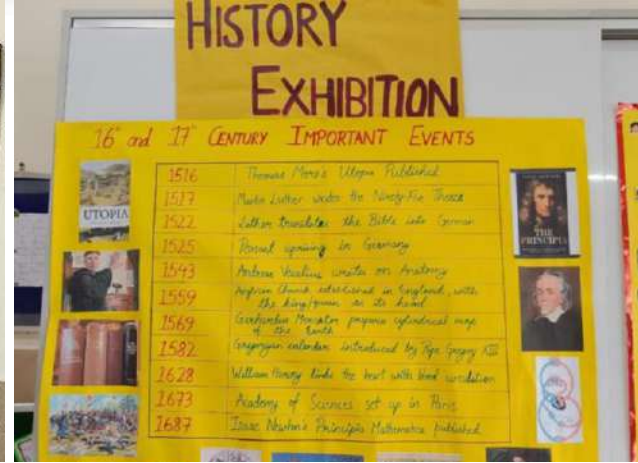 HISTORY
EXHIBITION
16th and 17th CENTURY IMPORTANT EVENTS
1516 Thomas More's Utopia Published
1517 Martin Luther writes the Ninety-Five Theses
1522 Luther translates the Bible into German
1525 Peasant uprising in Germany
1543 Andreas Vesalius writes on Anatomy
1559 Anglican Church established in England, with
the king/queen as its head
1569 Gerhardus Mercator prepares cylindrical map
of the Earth
1582 Gregorian calendar introduced by Pope Gregory XIII
1628 William Harvey links the heart with blood circulation
1673 Academy of Sciences set up in Paris
1687 Isaac Newton's Principia Mathematica published
UTOPIA
THE
PRINCIPIA